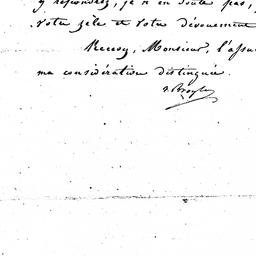 y répondrez, je n'en doute pas,
votre zèle et votre dévouement
Recevez, Monsieur, l'assu
ma considération distinguée.